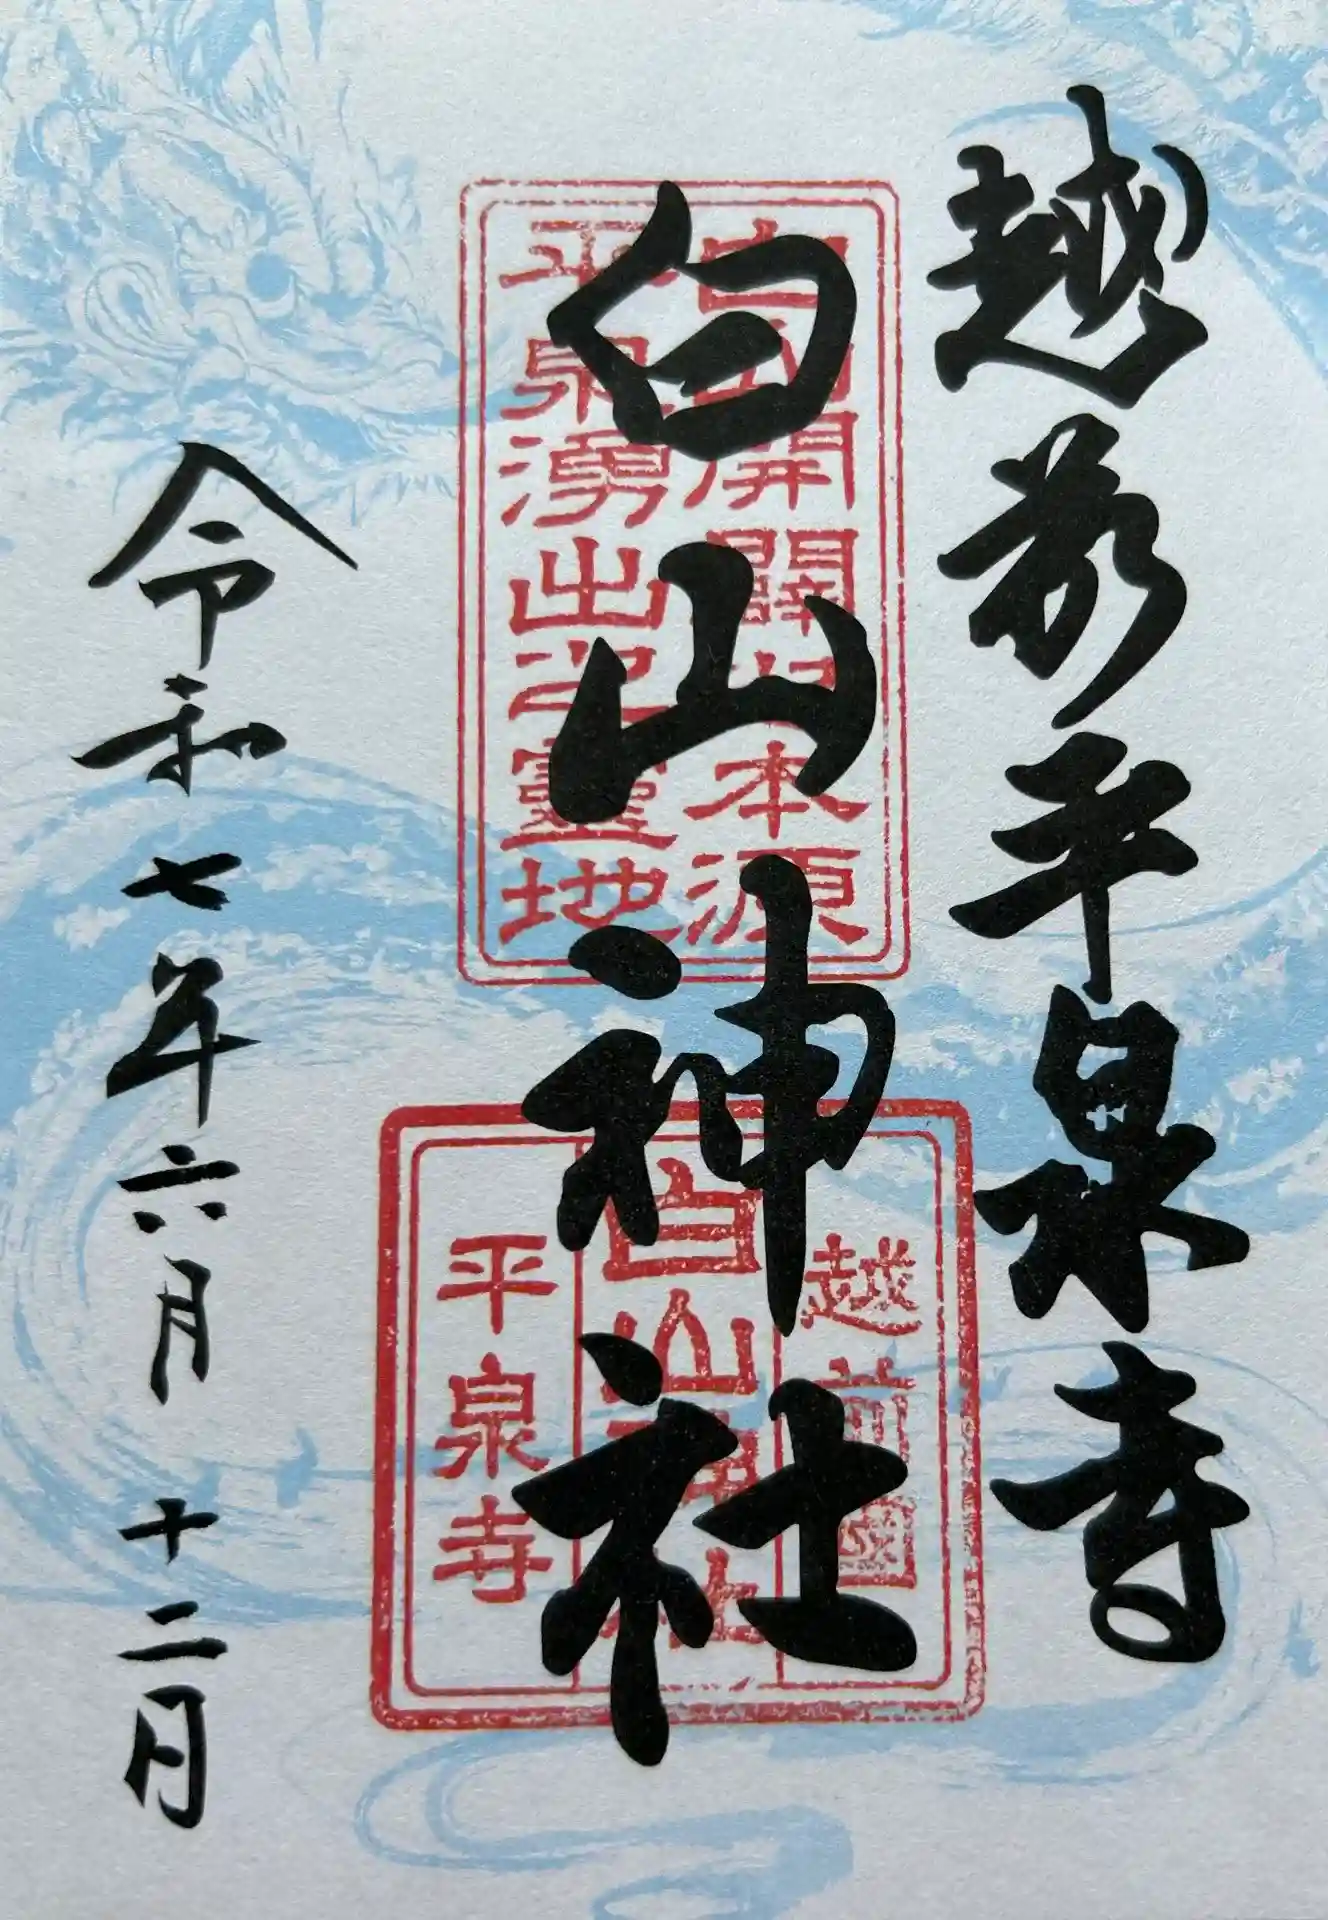 越前平泉寺
白山神社
令和七年六月十二日
白山開闢之本源
平泉湧出之靈地
越前國
白山神社
平泉寺